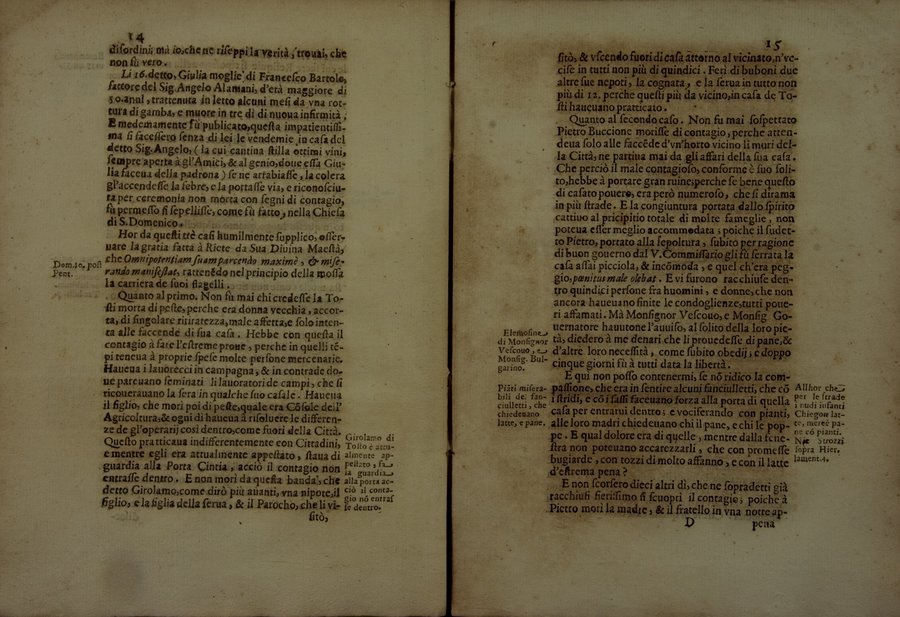 14
disordini; mà io, che ne riseppi la verità, trouai, che
non fù vero.
Li 16. detto, Giulia moglie di Francesco Bartolo,
fattore del Sig. Angelo Alamani, d'età maggiore di
50. anni, trattenuta in letto alcuni mesi da vna rot-
tura di gamba, e muore in tre dì di nuoua infirmità,
E medemamente fù publicato, questa impatientissi-
ma si facessero senza di lei le vendemie in casa del
detto Sig. Angelo, (la cui cantina stilla ottimi vini,
sempre aperta à gl'Amici, & al genio, doue essa Giu-
lia faceua della padrona) se ne arrabiasse, la colera
gl'accendesse la febre, e la portasse via, e riconosciu-
ta per ceremonia non morta con segni di contagio,
fù permesso si sepellisse, come fù fatto, nella Chiesa
di S. Domenico.
Hor da questi trè casi humilmente supplico, osser-
uare la gratia fatta à Riete da Sua Diuina Maestà,
che Omnipotentiam suam parcendo maximè, & mise-
rando manifestat, rattenēdo nel principio della mossa
la carriera de suoi flagelli.
Dom. 10. post
Pent.
Quanto al primo. Non fù mai chi credesse la To-
sti morta di peste, perche era donna vecchia, accor-
ta, di singolare ritiratezza, male affetta, e solo inten-
ta alle faccende di sua casa. Hebbe con questa il
contagio à fare l'estreme proue, perche in quelli tē-
pi teneua à proprie spese molte persone mercenarie.
Haueua i lauorecci in campagna, & in contrade do-
ue pareuano seminati li lauoratori de campi, che si
ricouerauano la sera in qualche suo casale. Haueua
il figlio, che morì poi di peste, quale era Cōsole dell'
Agricoltura, & ogni dì haueua à risoluere le differen-
ze de gl'operarij così dentro, come fuori della Città.
Questo pratticaua indifferentemente con Cittadini,
e mentre egli era attualmente appestato, staua di
guardia alla Porta Cintia, acciò il contagio non
entrasse dentro. E non morì da questa banda, che
detto Girolamo, come dirò più auanti, vna nipote, il
figlio, e la figlia della serua, & il Parocho, che li vi-
sitò,
Girolamo di
Tosto è attu-
almente ap-
pestato, fa
la guardia
alla porta ac-
ciò il conta-
gio nō entras
se dentro.
15
sitò, & vscendo fuori di casa attorno al vicinato, n'vc-
cise in tutti non più di quindici. Ferì di buboni due
altre sue nepoti, la cognata, e la serua in tutto non
più di 12. perche questi più da vicino, in casa de To-
sti haueuano pratticato.
Quanto al secondo caso. Non fu mai sospettato
Pietro Buccione morisse di contagio, perche atten-
deua solo alle faccēde d'vn'horto vicino li muri del-
la Città, ne partiua mai da gl'affari della sua casa.
Che perciò il male contagioso, conforme è suo soli-
to, hebbe à portare gran ruine; perche se bene questo
di casato pouero, era però numeroso, che si dirama
in più strade. E la congiuntura portata dallo spirito
cattiuo al pricipitio totale di molte fameglie, non
poteua esser meglio accommodata; poiche il sudet-
to Pietro, portato alla sepoltura, subito per ragione
di buon gouerno dal V. Commissario gli fù serrata la
casa assai picciola, & incōmoda, e quel ch'era peg-
gio, pœnitus male olebat. E vi furono racchiuse den-
tro quindici persone fra huomini, e donne, che non
ancora haueuano finite le condoglienze, tutti poue-
ri affamati. Mà Monsignor Vescouo, e Monsig. Go-
uernatore hauutone l'auuiso, al solito della loro pie-
tà, diedero à me denari che li prouedesse di pane, &
d'altre loro necessità, come subito obedij, e doppo
cinque giorni fù à tutti data la libertà.
Elemosine
di Monsignor
Vescouo, e
Monsig. Bul-
garino.
E qui non posso contenermi, se nō ridico la com-
passione, che era in sentire alcuni fanciulletti, che cō
i stridi, e cō i sassi faceuano forza alla porta di quella
casa per entrarui dentro; e vociferando con pianti,
alle loro madri chiedeuano chi il pane, e chi le pop-
pe. E qual dolore era di quelle, mentre dalla fene-
stra non poteuano accarezzarli, che con promesse
bugiarde, con tozzi di molto affanno, e con il latte
d'estrema pena?
Piāti misera-
bili de fan-
ciulletti, che
chiedeuano
latte, e pane.
Allhor che
per le strade
i nudi infanti
Chieggon lat-
te, mercè pa-
ne cō pianti.
Strozzi
sopra Hier.
lament. 4.
E non scorsero dieci altri dì, che ne sopradetti già
racchiusi fierissimo si scuoprì il contagio; poiche à
Pietro morì la madre, & il fratello in vna notte ap-
D pena